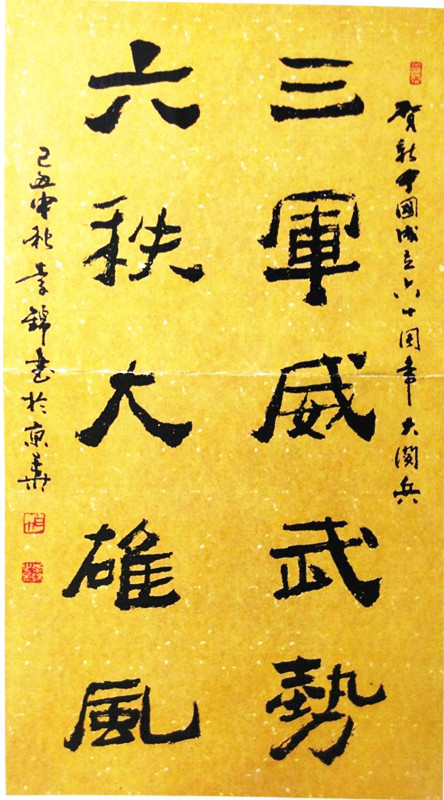 贺新中國成立六十周年大阅兵
三軍威武勢
六秩大雄風
己丑中秋李錦书於京華